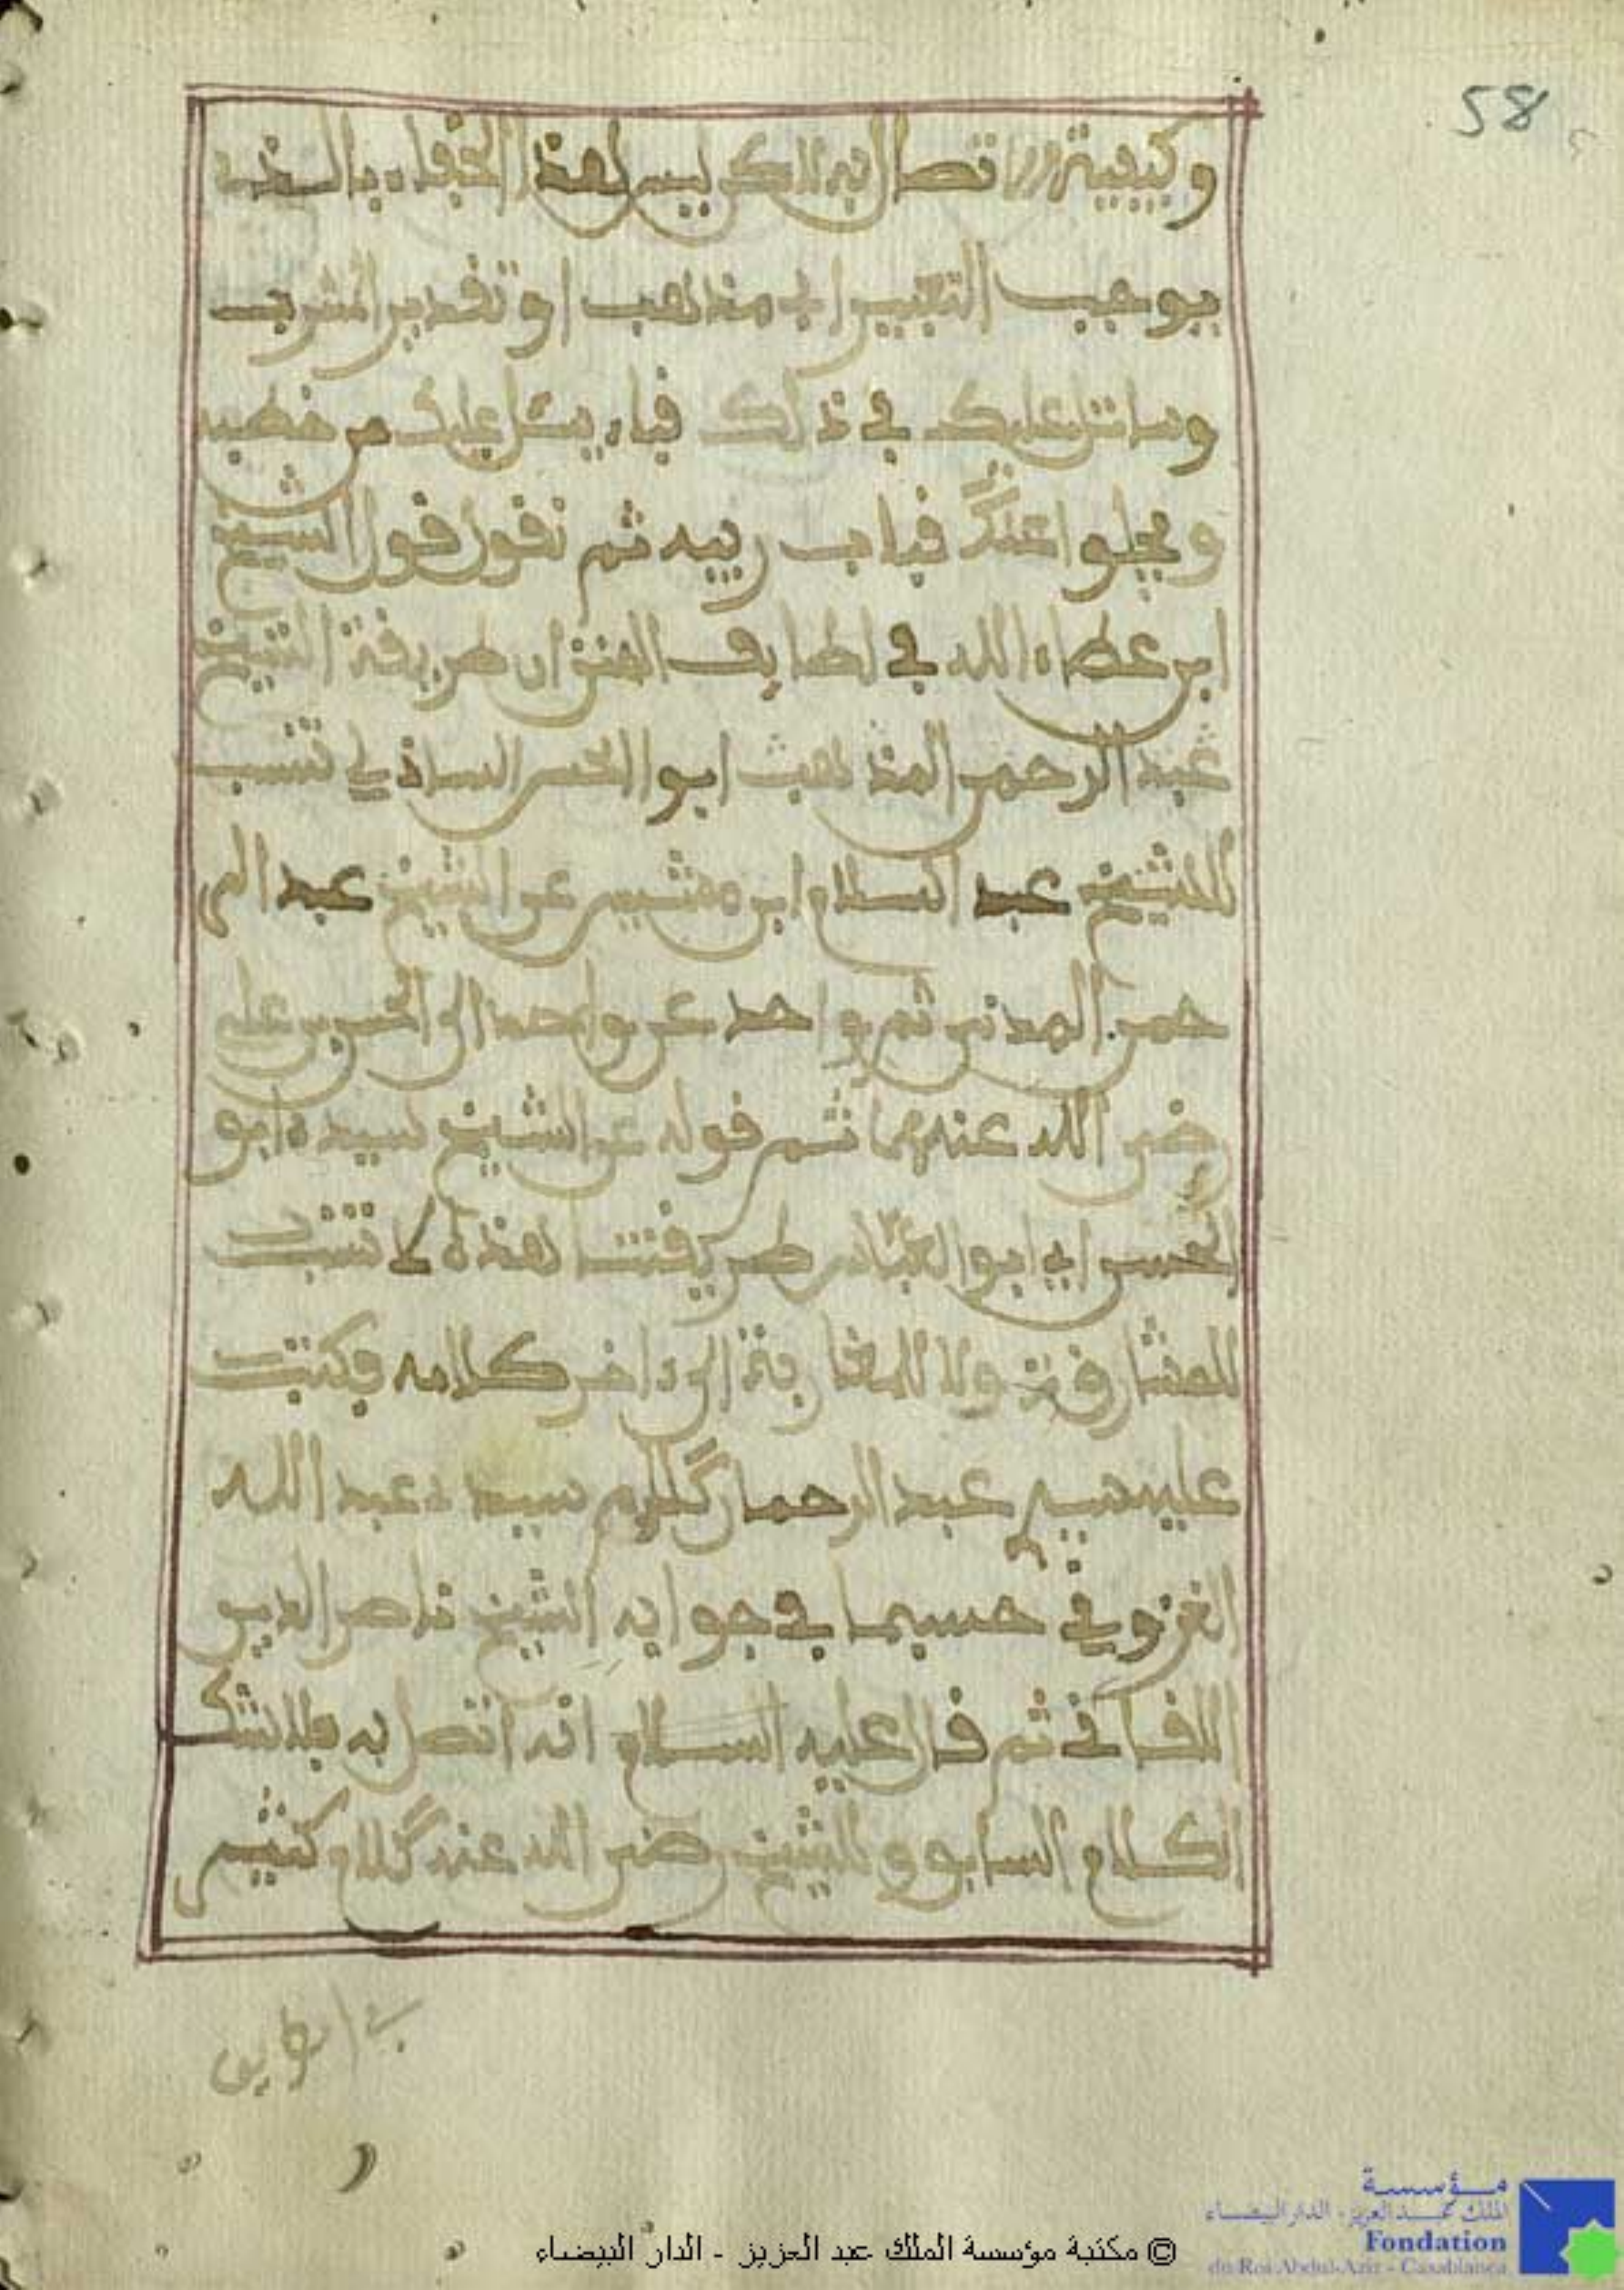 58
وكيفية الاتصال به لاكن ليس لهذا الخفاء بالسند
يوجب التغيير في مذهب او تقدير المشرب
وساتل عليك في ذلك فباء يتل عليك من خطبه
ويجلوا عنك فباب ريبه ثم نقول قول الشيخ
ابن عطاء الله في لطايف المنن ان طريقة الشيخ
عبد الرحمن المذهب ابو الحسن الشاذلي تنسب
للشيخ عبد السلام ابن مشيس عن الشيخ عبد الر
حمن المدني ثم واحد عن واحد الى الحسن بن علي
رضي الله عنهما ثم قوله عن الشيخ سيد ابو
الحسن ابي ابو العباس طريقتنا هذه لا تنسب
للمشارقة ولا للمغاربة الى داخر كلامه فكتبت
عليه سيد عبد الرحمان كلام سيد عبد الله
الغزواني حسبما في جوابه الشيخ ناصر الدين
اللقاني ثم قال عليه السلام انه اتصل به بلا شك
الكلام السابق وللشيخ رضي الله عنه كلام كثير
في الطريق
© مكتبة مؤسسة الملك عبد العزيز - الدار البيضاء
مؤسسة
الملك عبد العزيز - الدار البيضاء
Fondation
du Roi Abdul-Aziz - Casablanca